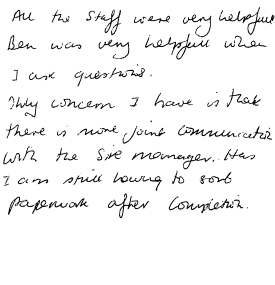 All the staff were very helpfull
Ben was very helpfull when
I ask questions.
Only concern I have is that
there is more joint communication
with the Site manager. Has
I am still having to sort
paperwork after completion.